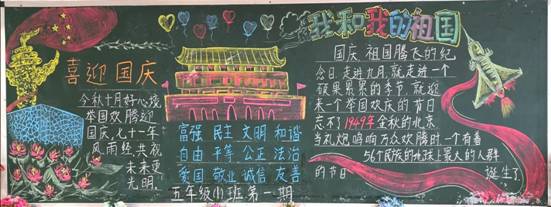 喜迎国庆
今秋十月好心烧
举国欢腾迎
国庆,七十一年
风雨经,共祝
未来更
光明.
富强 民主 文明 和谐
自由 平等 公正 法治
爱国 敬业 诚信 友善
五年级(1)班第一期
我和我的祖国
国庆,祖国腾飞的纪
念日,走进九月,就走进一个
硕果累累的季节,就迎
来一个举国欢庆的节日
忘不了1949年金秋的北京
当礼炮鸣响万众欢腾时一个有着
56个民族的地球上最大的人群
的节日
诞生了